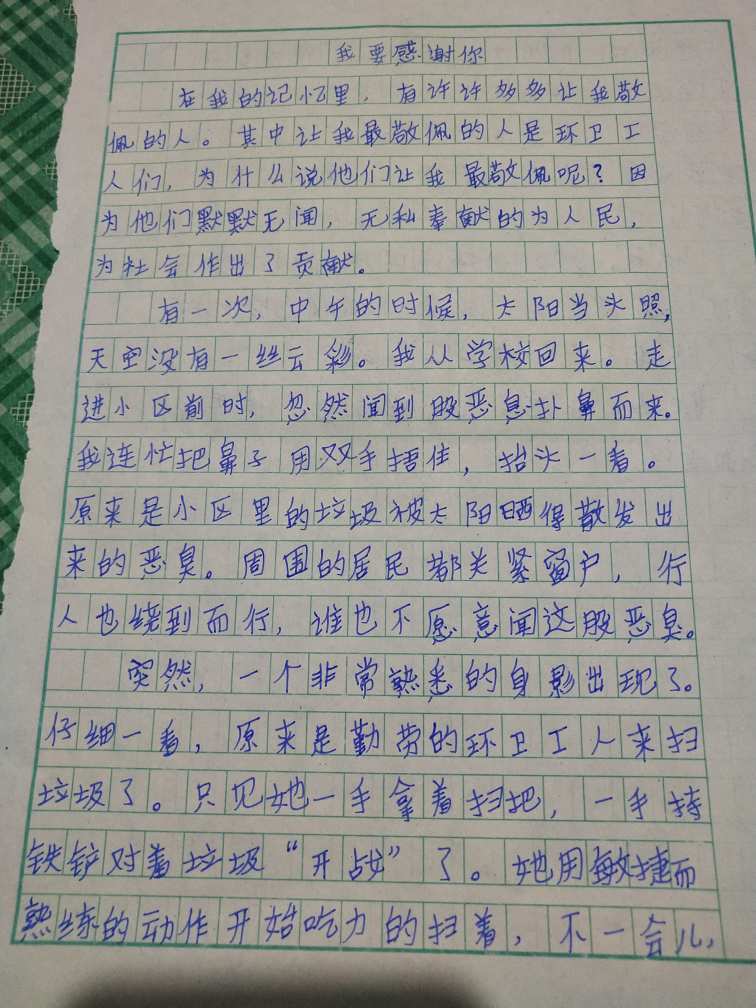 我要感谢你
在我的记忆里，有许许多多让我敬
佩的人。其中让我最敬佩的人是环卫工
人们，为什么说他们让我最敬佩呢？因
为他们默默无闻，无私奉献的为人民，
为社会作出了贡献。
有一次，中午的时候，太阳当头照，
天空没有一丝云彩。我从学校回来。走
进小区前时，忽然闻到股恶息扑鼻而来。
我连忙把鼻子用双手捂住，抬头一看。
原来是小区里的垃圾被太阳晒得散发出
来的恶臭。周围的居民都关紧窗户，行
人也绕到而行，谁也不愿意闻这股恶臭。
突然，一个非常熟悉的身影出现了。
仔细一看，原来是勤劳的环卫工人来扫
垃圾了。只见她一手拿着扫把，一手持
铁铲对着垃圾“开战”了。她用敏捷而
熟练的动作开始吃力的扫着，不一会儿，